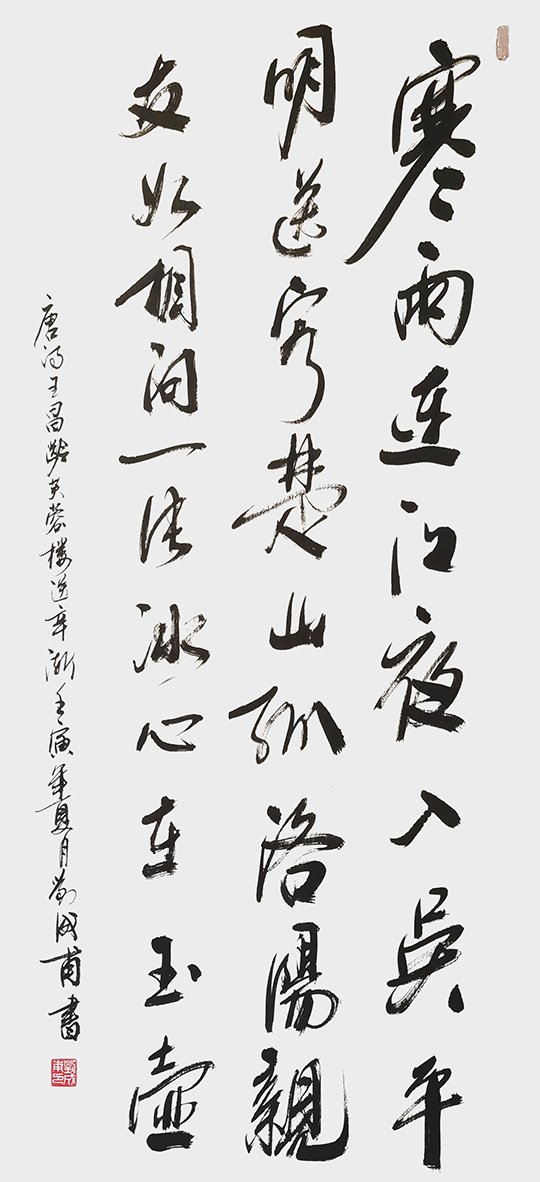 寒雨連江夜入吳平
明送客楚山孤洛陽親
友如相問一片冰心在玉壺
唐詩王昌齡芙蓉樓送辛漸壬寅年夏月劉成甫書